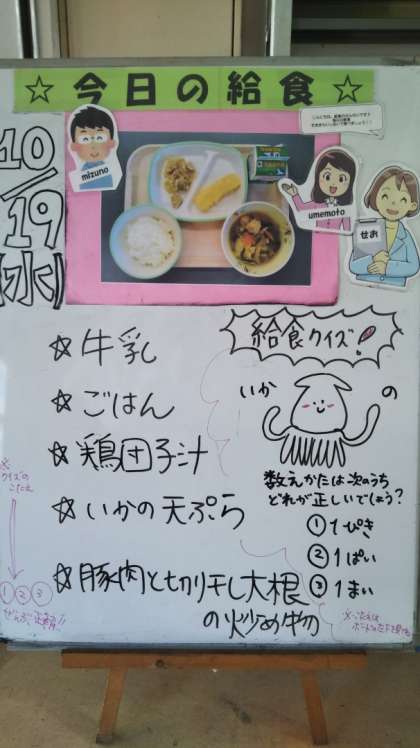 ☆今日の給食☆
10/19(水)
mizuno
umemoto
せお
☆牛乳
☆ごはん
☆鶏団子汁
☆いかの天ぷら
☆豚肉と切り干し大根
の炒め物
給食クイズ!
いかの
数えかたは次のうち
どれが正しいでしょう?
①1ぴき
②1ぱい
③1まい
※クイズの
こたえ
①②③
ぜんぶ正解!!